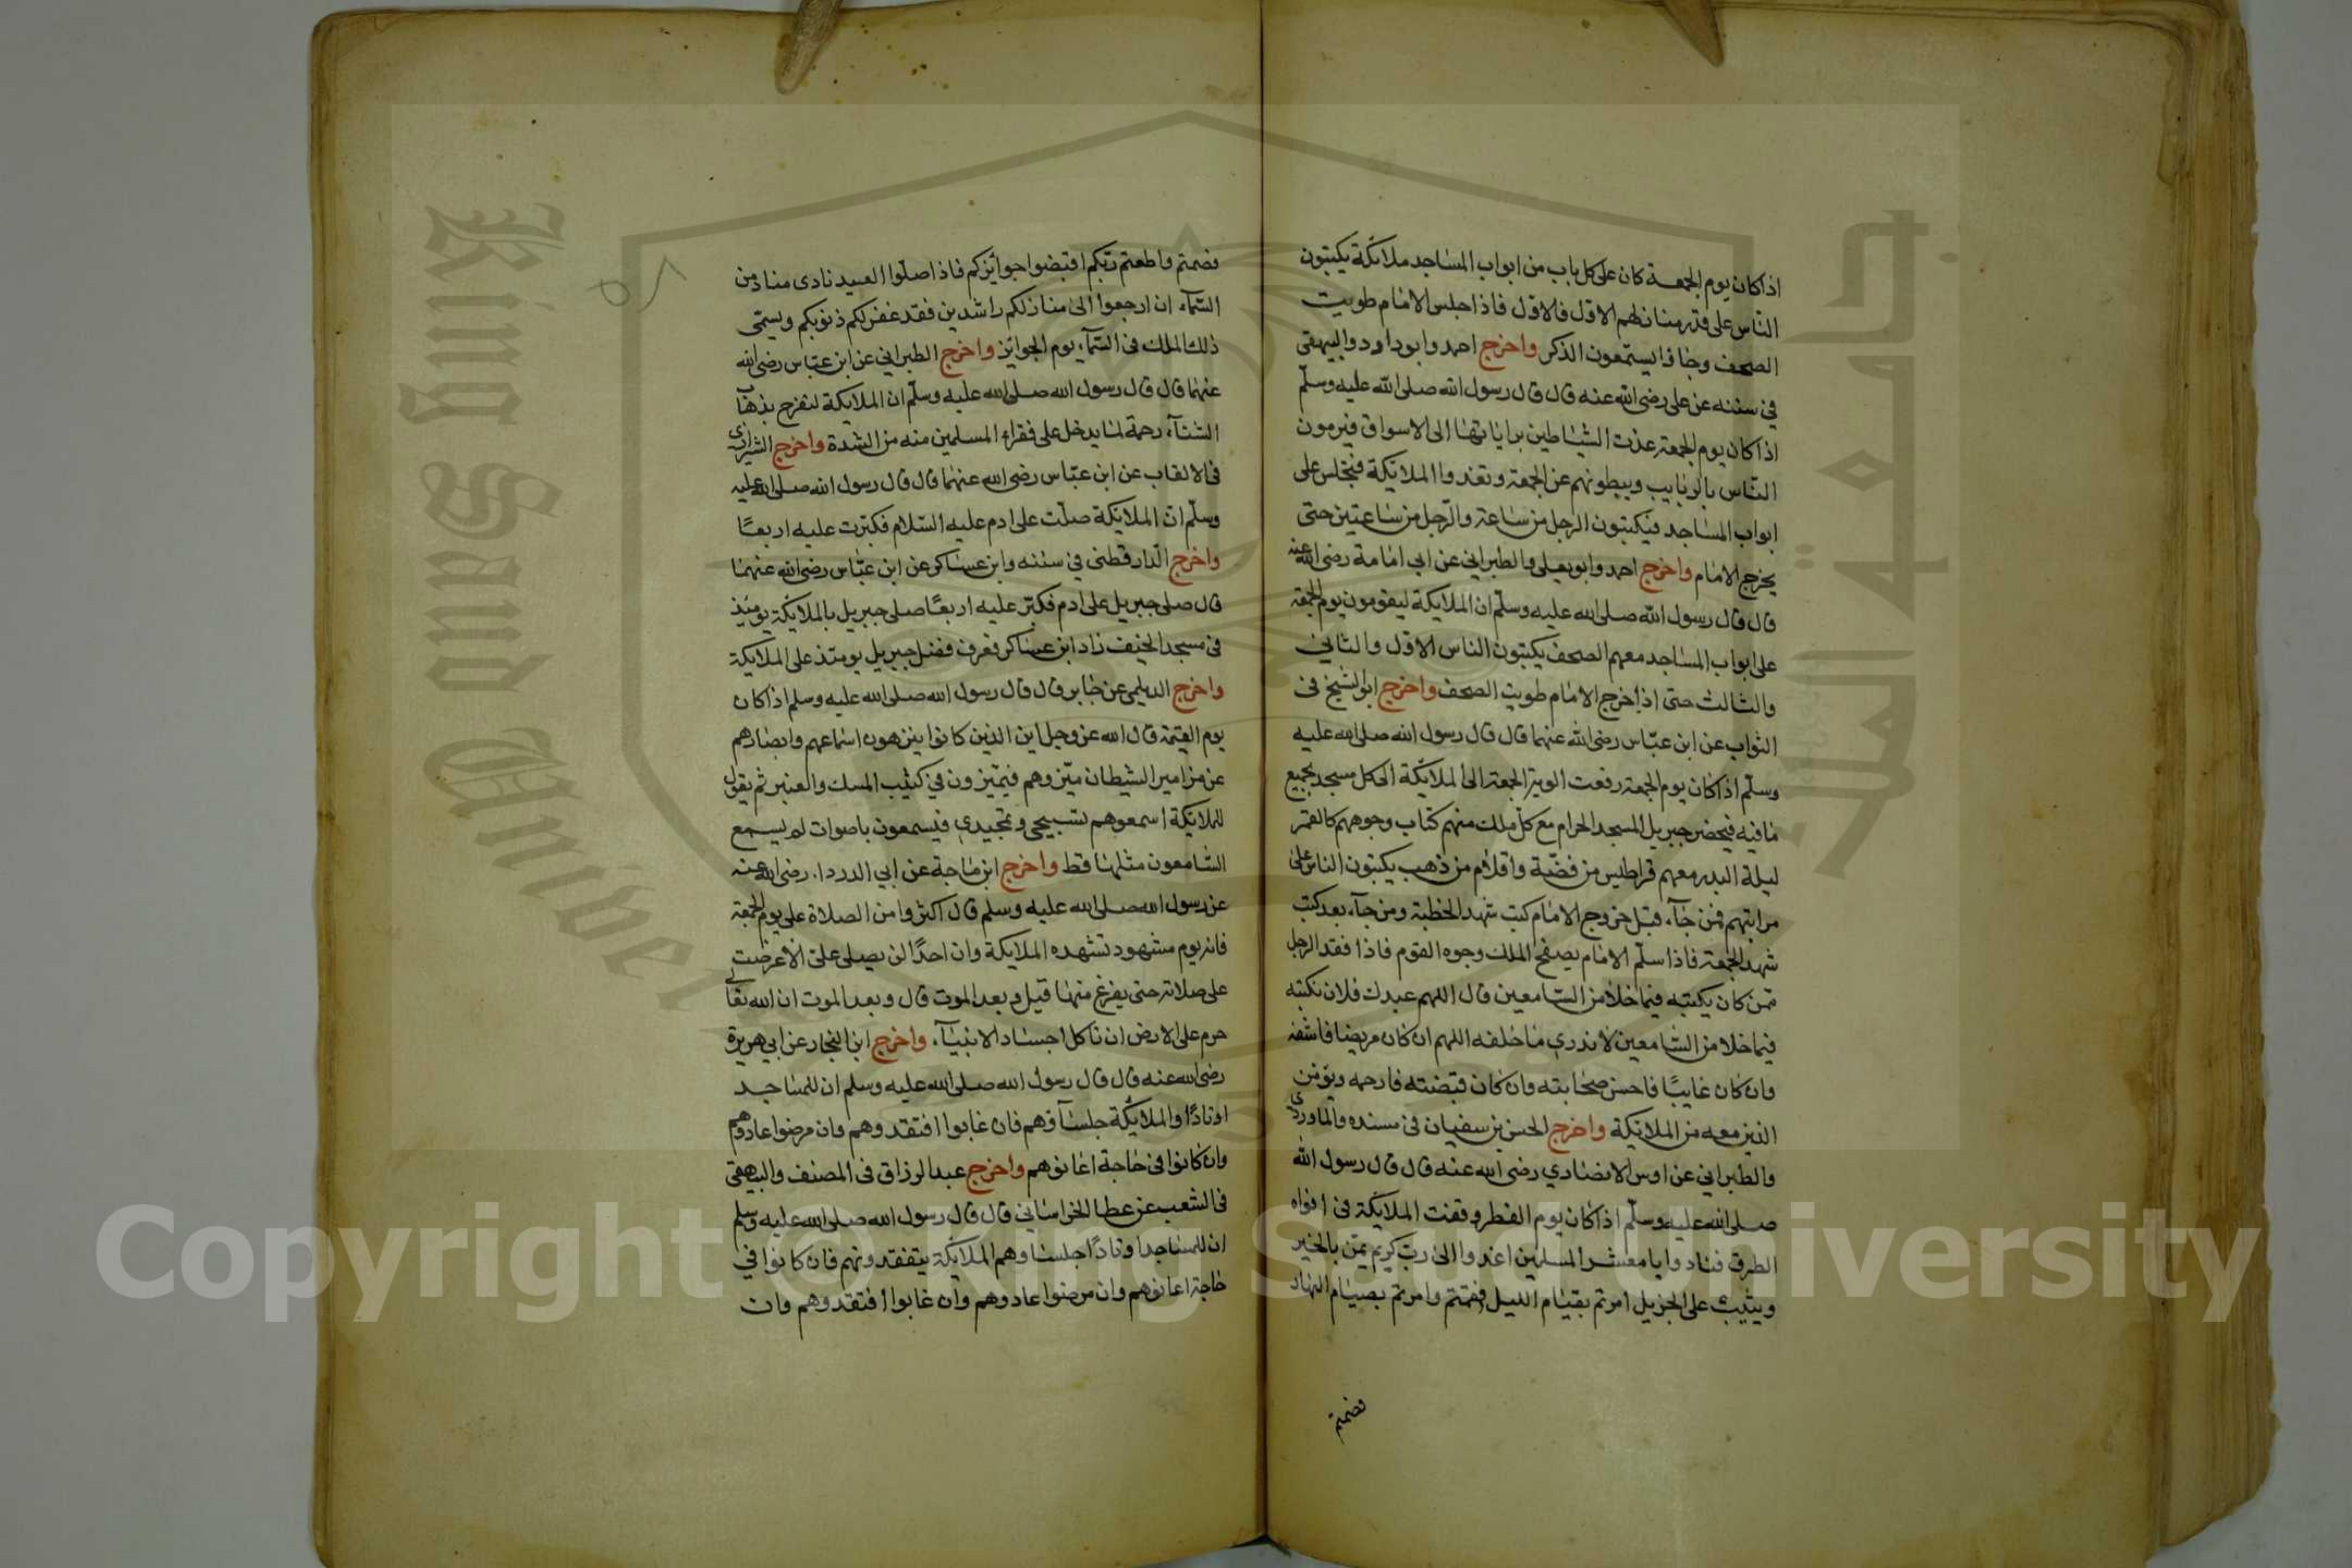 اذا كان يوم الجمعة كان على كل باب من ابواب المساجد ملائكة يكتبون
الناس على قدر منازلهم الاول فالاول فاذا جلس الامام طويت
الصحف وجاؤا يستمعون الذكر واخرج احمد وابو داود والبيهقي
في سننه عن علي رضي الله عنه قال قال رسول الله صلى الله عليه وسلم
اذا كان يوم الجمعة غدت الشياطين براياتها الى الاسواق فيرمون
الناس بالربايب ويبطونهم عن الجمعة وتغدوا الملائكة فتجلس على
ابواب المساجد فيكتبون الرجل من ساعة والرجل من ساعتين حتى
يخرج الامام واخرج احمد وابو يعلى والطبراني عن ابي امامة رضي الله عنه
قال قال رسول الله صلى الله عليه وسلم ان الملايكة ليقومون يوم الجمعة
على ابواب المساجد معهم الصحف يكتبون الناس الاول والثاني
والثالث حتى اذا خرج الامام طويت الصحف واخرج ابو الشيخ في
الثواب عن ابن عباس رضي الله عنهما قال قال رسول الله صلى الله عليه
وسلم اذا كان يوم الجمعة رفعت الوية الجمعة الى الملائكة الى كل مسجد يجمع
ما فيه فيحضر جبريل المسجد الحرام مع كل ملك منهم كتاب وجوههم كالقمر
ليلة البدر معهم قراطيس من فضة واقلام من ذهب يكتبون الناس على
مراتبهم فمن جآء قبل خروج الامام كتب شهد الخطبة ومن جآء بعد كتب
شهد الجمعة فاذا سلم الامام يصفح الملك وجوه القوم فاذا فقد الرجل
ممن كان يكتبه فيما خلا من السامعين قال اللهم عبدك فلان نكتبه
فيما خلا من السامعين لا ندري ما خلفه اللهم ان كان مريضا فاشفه
وان كان غايبًا فاحسن صحابته وان كان قبضته فارحمه ويؤمن
الذين معه من الملائكة واخرج الحسن بن سفيان في مسنده والماوردي
والطبراني عن اوس الانصاري رضي الله عنه قال قال رسول الله
صلى الله عليه وسلم اذا كان يوم الفطر وقفت الملائكة في افواه
الطرق فنادوا يا معشر المسلمين اغدوا الى رب كريم يمن بالخير
ويثيب على الجزيل امرتم بقيام الليل فقمتم وامرتم بصيام النهار
فصمتم
فصمتم واطعتم ربكم اقبضوا جوائزكم فاذا صلوا العيد نادى مناد من
السمآء ان ارجعوا الى منازلكم راشدين فقد غفر لكم ذنوبكم ويسمى
ذلك الملك في السمآء يوم الجوائز واخرج الطبراني عن ابن عباس رضي الله
عنهما قال قال رسول الله صلى الله عليه وسلم ان الملايكة لتفرح بذهاب
الشتآء رحمة لما يدخل على فقراء المسلمين منه من الشدة واخرج الشيرازي
في الالقاب عن ابن عباس رضي الله عنهما قال قال رسول الله صلى الله عليه
وسلم ان الملائكة صلت على ادم عليه السلام فكبرت عليه اربعًا
واخرج الدارقطني في سننه وابن عساكر عن ابن عباس رضي الله عنهما
قال صلى جبريل على ادم فكبر عليه اربعًا صلى جبريل بالملائكة يومئذ
في مسجد الخيف زاد ابن عساكر فعرف فضل جبريل يومئذ على الملايكة
واخرج الديلمي عن جابر قال قال رسول الله صلى الله عليه وسلم اذا كان
يوم القيمة قال الله عز وجل اين الذين كانوا ينزهون اسماعهم وابصارهم
عن مزامير الشيطان ميزوهم فيميزون في كثيب المسك والعنبر ثم يقول
للملايكة اسمعوهم تسبيحي وتمجيدي فيسمعون باصوات لم يسمع
السامعون مثلها قط واخرج ابن ماجة عن ابي الدردا رضي الله عنه
عن رسول الله صلى الله عليه وسلم قال اكثروا من الصلاة على يوم الجمعة
فانه يوم مشهود تشهده الملايكة وان احدًا لن يصلى على الا عرضت
على صلاته حتى يفرغ منها قيل وبعد الموت قال وبعد الموت ان الله تعالى
حرم على الارض ان تاكل اجساد الانبيآء واخرج ابن النجار عن ابي هريرة
رضي الله عنه قال قال رسول الله صلى الله عليه وسلم ان للمساجد
اوتادًا والملائكة جلسآؤهم فان غابوا افتقدوهم وان مرضوا عادوهم
وان كانوا في حاجة اعانوهم واخرج عبد الرزاق في المصنف والبيهقي
في الشعب عن عطا الخراساني قال قال رسول الله صلى الله عليه وسلم
ان للمساجد اوتادًا جلساوهم الملائكة يتفقدونهم فان كانوا في
حاجة اعانوهم وان مرضوا عادوهم وان غابوا افتقدوهم وان
جامعة الملك
King Saud Univer
Copyright © King Saud University